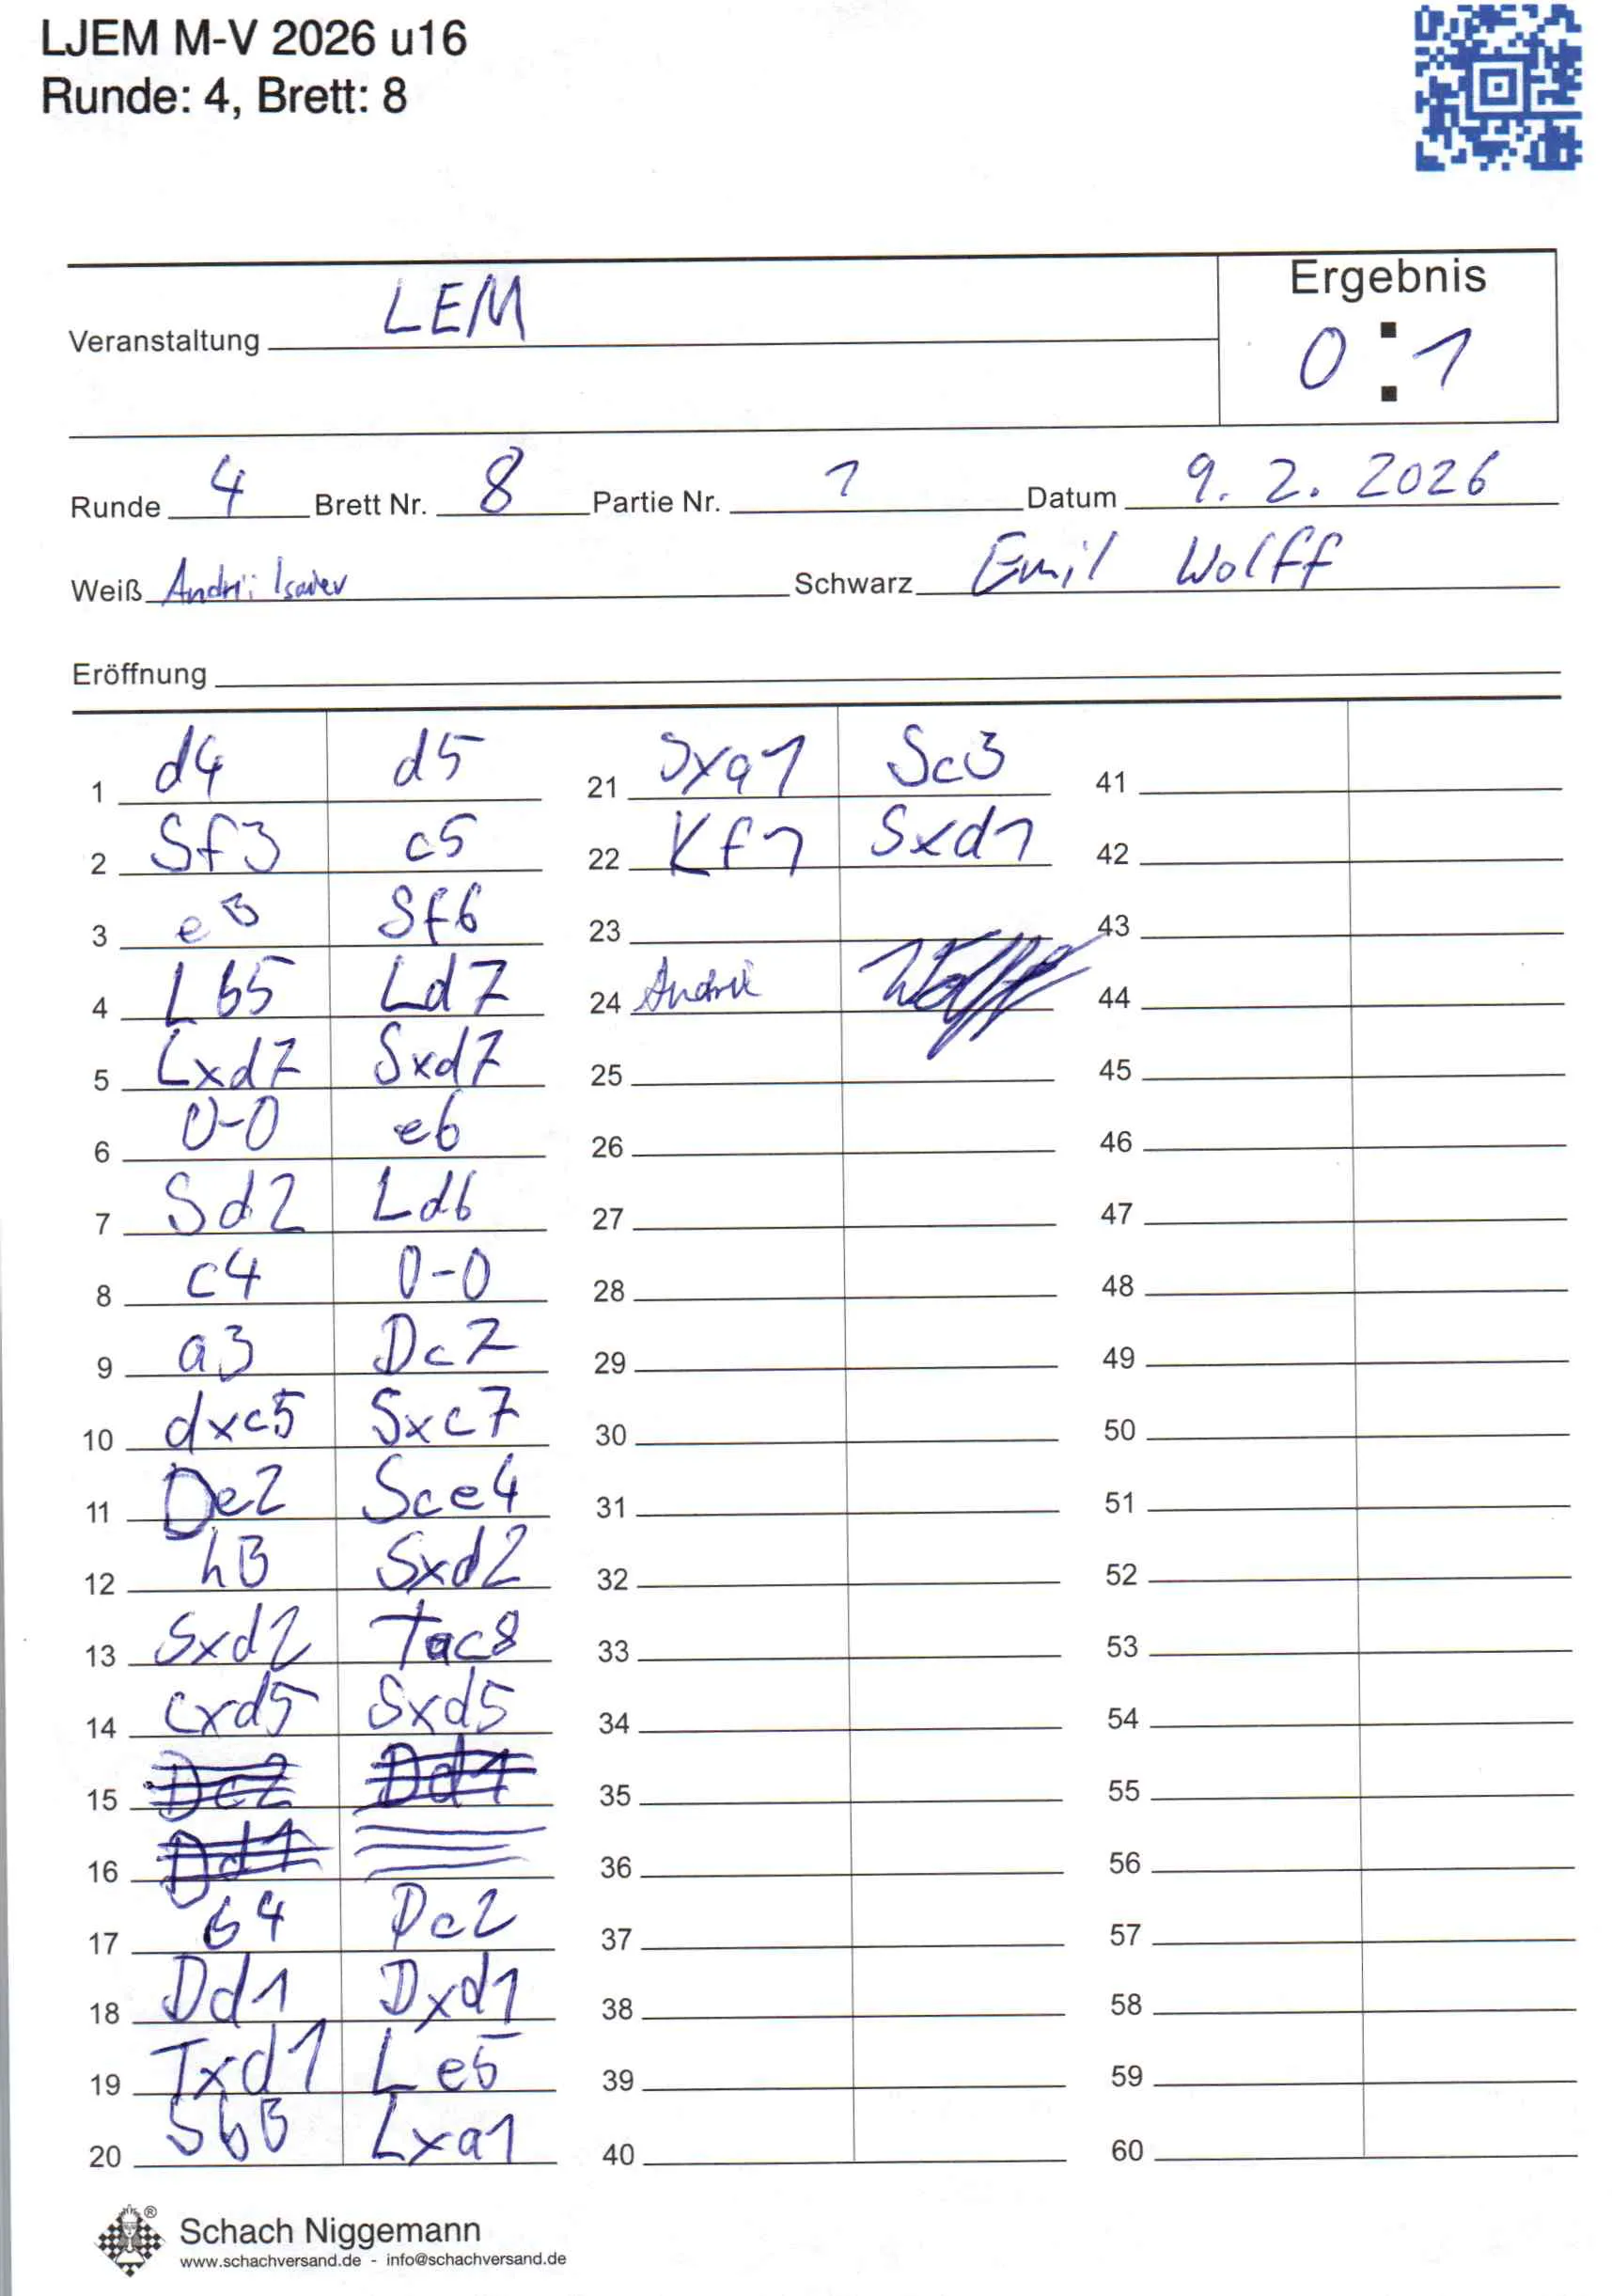 LJEM M-V 2026 u16
Runde: 4, Brett: 8
Ergebnis
Veranstaltung LEM
0 : 1
Runde 4 Brett Nr. 8 Partie Nr. 1 Datum 9. 2. 2026
Weiß Andrii Isaiev Schwarz Emil Wolff
Eröffnung
1 d4 d5
2 Sf3 c5
3 e3 Sf6
4 Lb5 Ld7
5 Lxd7 Sxd7
6 0-0 e6
7 Sd2 Ld6
8 c4 0-0
9 a3 Dc7
10 dxc5 Sxc7
11 De2 Sce4
12 h3 Sxd2
13 Sxd2 Tac8
14 cxd5 Sxd5
15 Dc2 Dd1
16 Dd1
17 b4 Dc2
18 Dd1 Dxd1
19 Txd1 Le5
20 Sb3 Lxa1
21 Sxa1 Sc3
22 Kf1 Sxd1
23
24 Andrii Wolff
25
26
27
28
29
30
31
32
33
34
35
36
37
38
39
40
41
42
43
44
45
46
47
48
49
50
51
52
53
54
55
56
57
58
59
60
Schach Niggemann ®
www.schachversand.de - info@schachversand.de